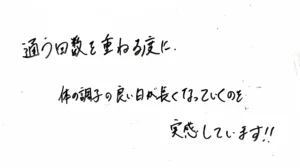 通う回数を重ねる度に、
体の調子の良い日が長くなっていくのを
実感しています!!